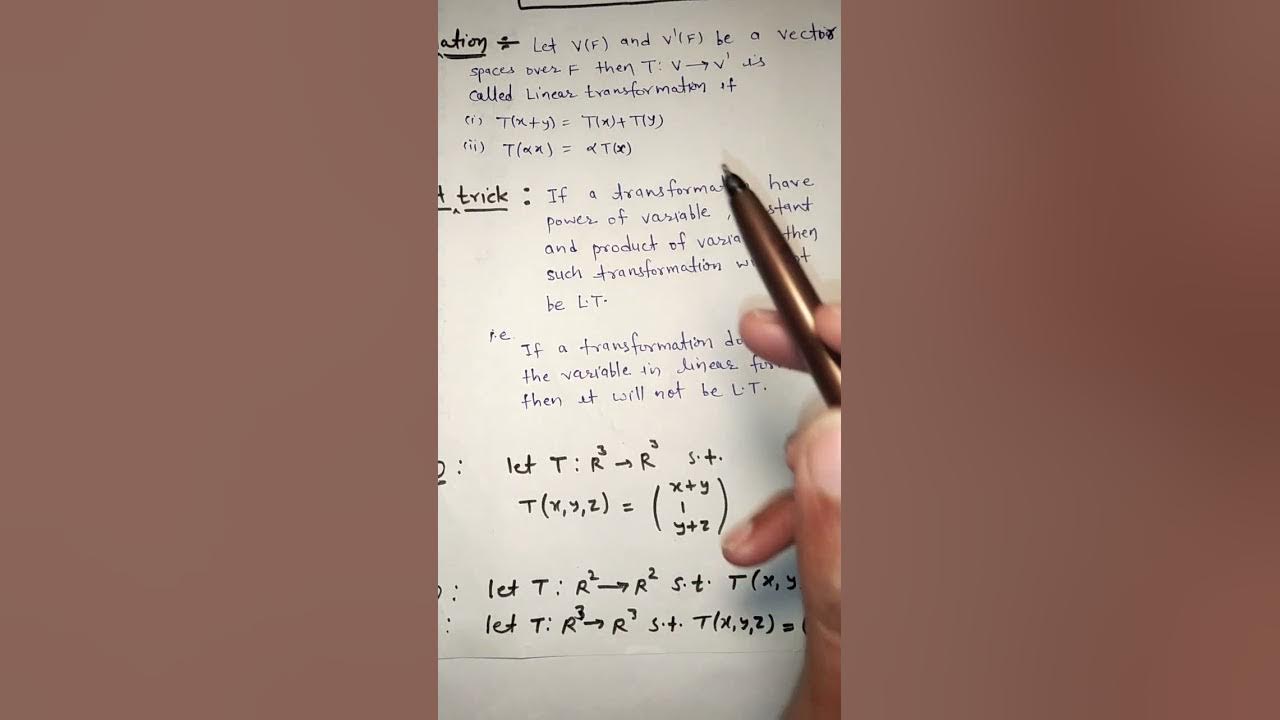 ation ÷ Let V(F) and V'(F) be a vector
spaces over F then T: V → V' is
called Linear transformation if
(i) T(x+y) = T(x)+T(y)
(ii) T(αx) = αT(x)
trick : If a transforma have
power of variable, stant
and product of varia then
such transformation w ot
be L.T.
i.e.
If a transformation do
the variable in linear fo
then it will not be L.T.
: let T: R³ → R³ s.t.
T(x,y,z) = ( x+y
1
y+z )
: let T: R² → R² s.t. T(x,y
: let T: R³ → R³ s.t. T(x,y,z) = (